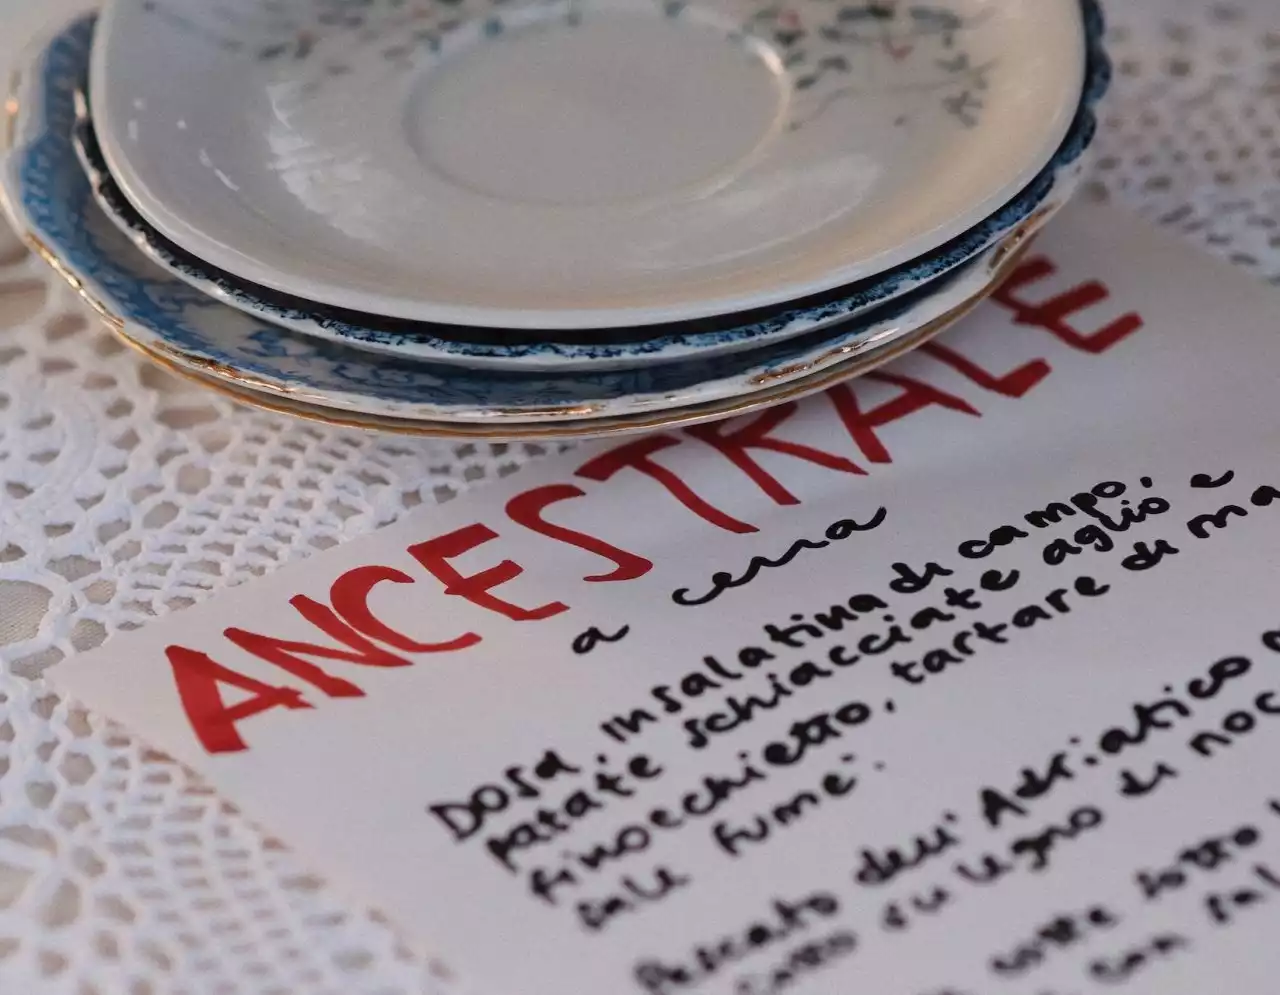 ANCESTRALE
a cena
Dosa, insalatina di campo,
patate schiacciate aglio e
finocchietto, tartare di ma
sale fumé.
Pescato dell'Adriatico
cotto su legno di noc
cotte sotto
con sal